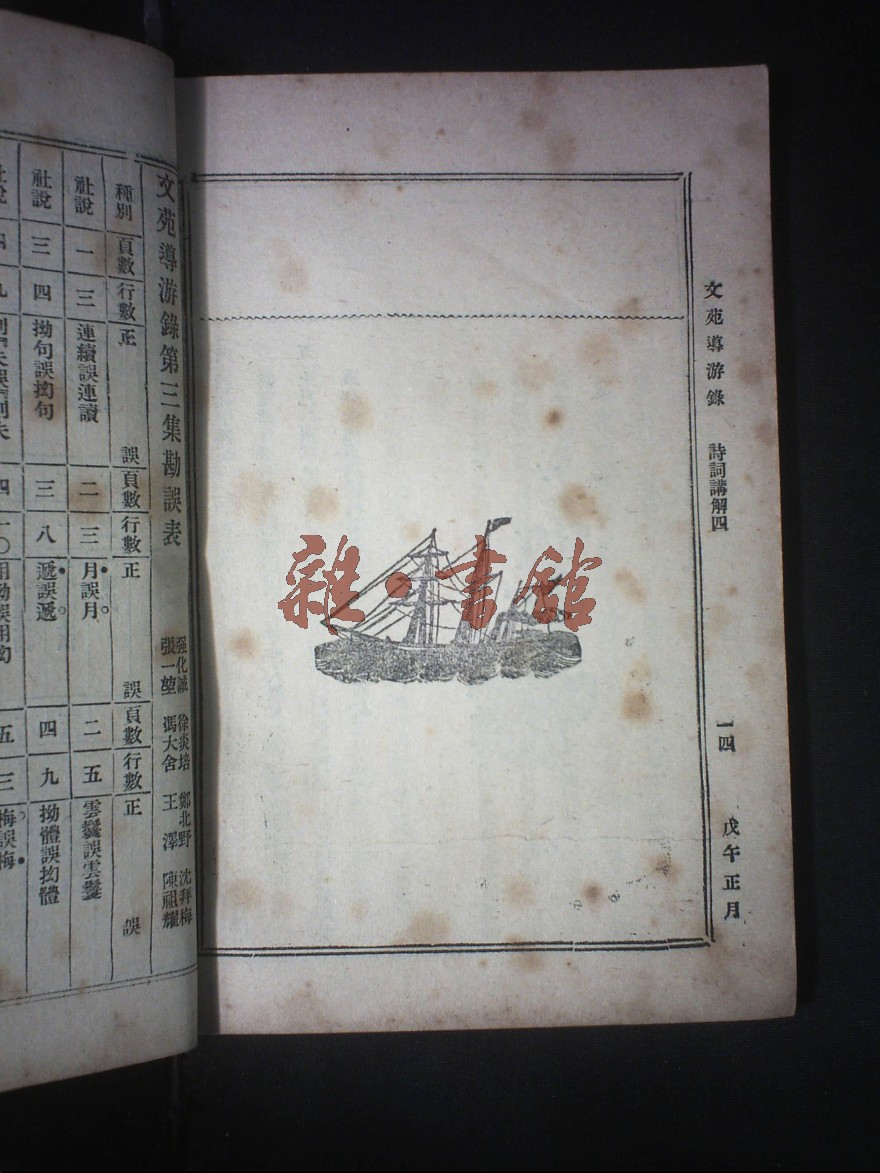 文苑導游錄 詩詞講解四 一四 戊午正月
雜·書館
文苑導游錄第三集勘誤表
强化誠 徐炎培 鄭北野 沈拜梅
張一堃 馮大舍 王澤 陳祖耀
種別 頁數 行數 正 誤 頁數 行數 正 誤 頁數 行數 正 誤
社說 一 三 連續誤連讀 二 三 月誤月 二 五 雲鬟誤雲鬘
社說 三 四 拗句誤抝句 三 八 遞誤遞 四 九 拗體誤抝體
社說 四 一〇 五 三 梅誤梅